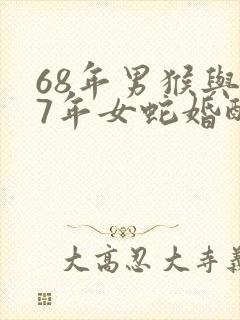 68年男猴與
7年女蛇婚配
大高忍大寺